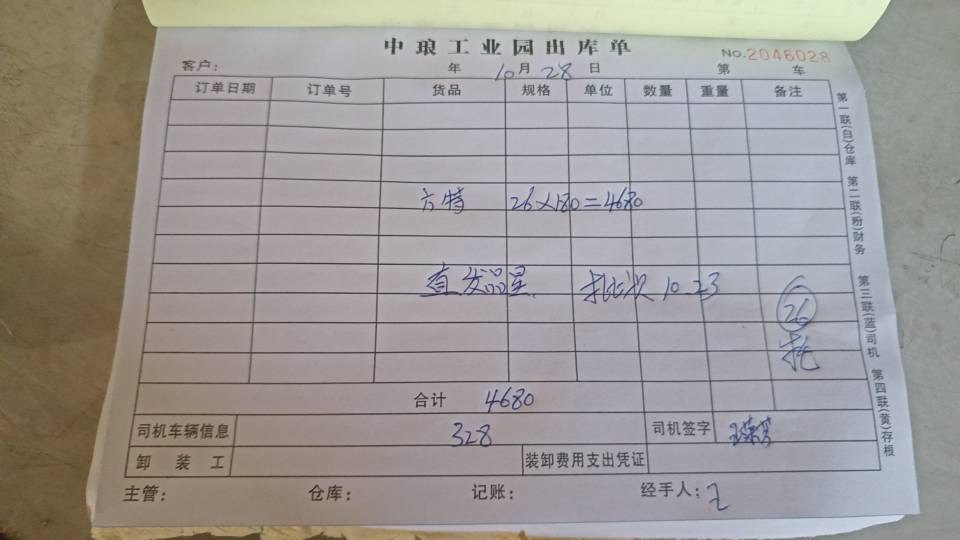 中琅工业园出库单
NO.2046028
客户： 年 10月28日 第 车
订单日期 订单号 货品 规格 单位 数量 重量 备注
六特 26×180=4680
直发品呈 批次 10.23
26
托
合计 4680
司机车辆信息 328 司机签字
卸装工 装卸费用支出凭证
主管： 仓库： 记账： 经手人：
第一联(白)仓库 第二联(粉)财务 第三联(蓝)司机 第四联(黄)存根